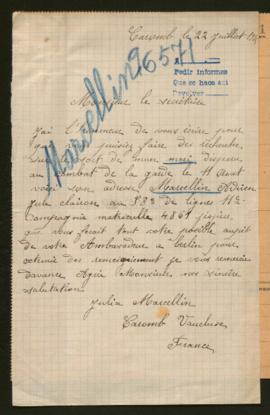 Caromb le 22 Juillet
Marcellin 96571
A
Pedir informes
Que se haca aqui
Devolver
Monsieur le secrétaire
J'ai l'honneur de vous écrire pour
que vous puissiez faire des recherches
sur le sort de mon mari disparu
au combat de la garde le 11 Aout
voici son adresse Marcellin Adrien
Jules clairon au 58e de ligne 11e
Compagnie matricule 4861 j'espère
que vous ferait tout votre possible aupït
de votre Ambassadeur a berlin pour
obtenir des renseignement je vous remercie
davance Agréé Monsieur mes sincère
salutation
Julia Marcellin
Caromb Vaucluse
France